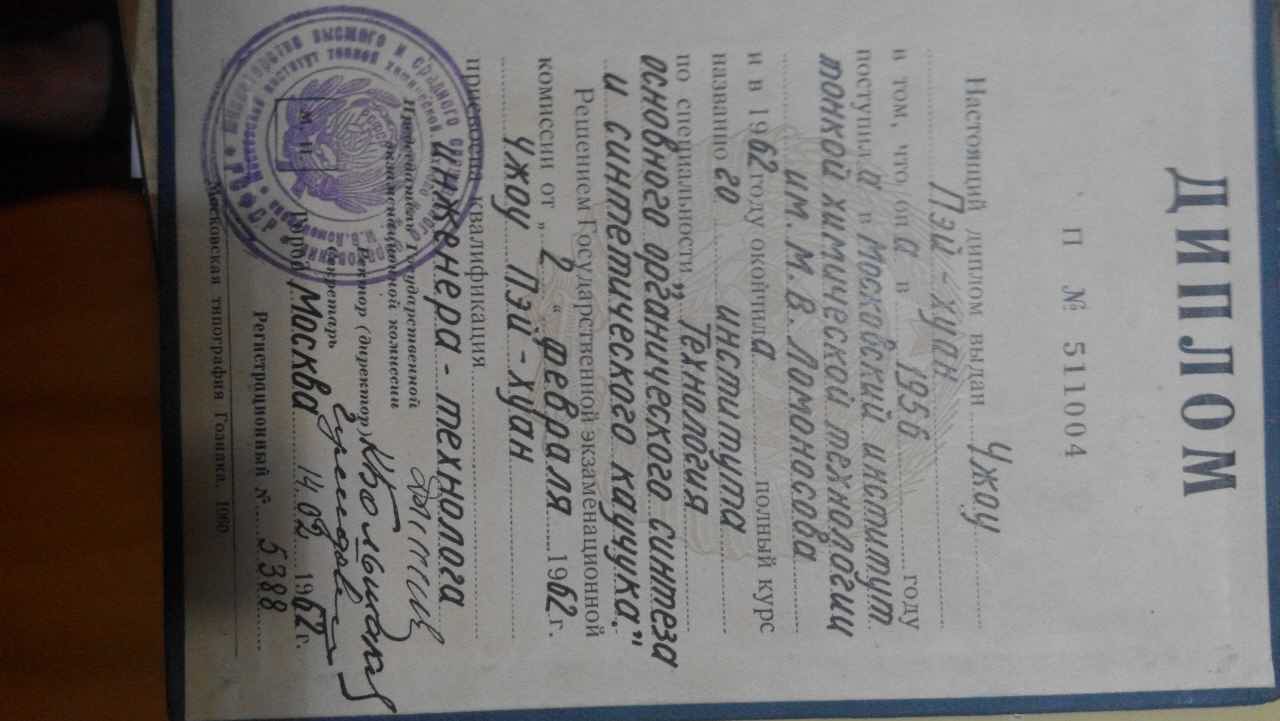 ДИПЛОМ
П № 511004
Настоящий диплом выдан Чжоу
Пэй-хуан
в том, что она в 1956 году
поступила в Московский институт
тонкой химической технологии
им. М. В. Ломоносова
и в 1962 году окончила полный курс
названного института
по специальности „Технология
основного органического синтеза
и синтетического каучука."
Решением Государственной экзаменационной
комиссии от „2" февраля 1962 г.
Чжоу Пэй-хуан
присвоена квалификация
инженера-технолога
Председатель Государственной
экзаменационной комиссии
Ректор (директор)
Секретарь
М. П.
Город Москва 14.02 1962 г.
Регистрационный № 5388
Московская типография Гознака. 1960.